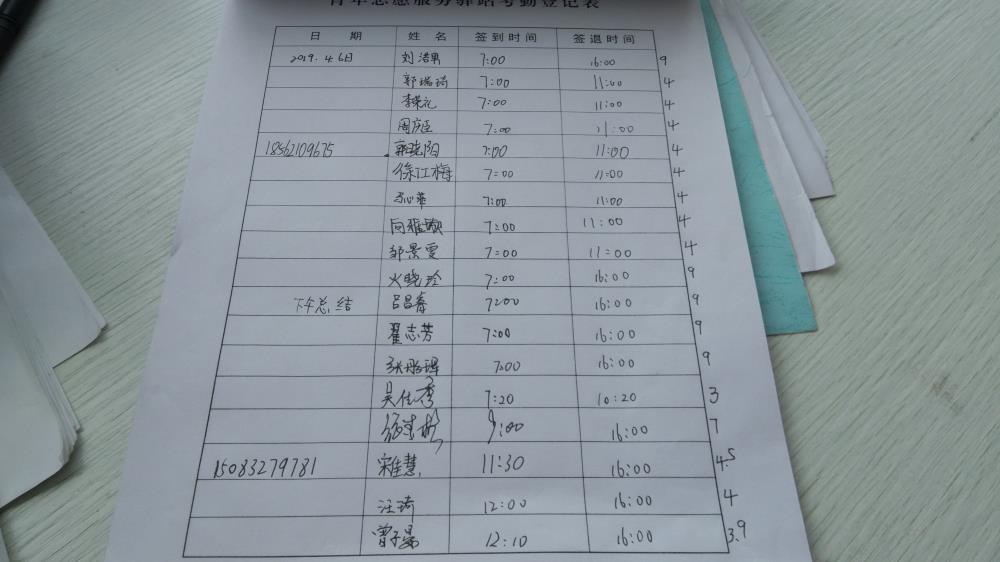 青年志愿服务驿站考勤登记表
日 期 姓 名 签到时间 签退时间
2019.4.6日 刘浩男 7:00 16:00 9
郭瑞琦 7:00 11:00 4
李荣礼 7:00 11:00 4
周庆臣 7:00 11:00 4
18562109675 郭晓阳 7:00 11:00 4
徐江梅 7:00 11:00 4
7:00 11:00 4
向雅 7:00 11:00 4
邹景雯 7:00 11:00 4
火晓玲 7:00 16:00 9
下午总结 吕昌春 7:00 16:00 9
翟志芳 7:00 16:00 9
张 7:00 16:00 9
吴佳秀 7:20 10:20 3
9:00 16:00 7
15083279781 宋佳慧 11:30 16:00 4.5
汪琦 12:00 16:00 4
曾子晏 12:10 16:00 3.9